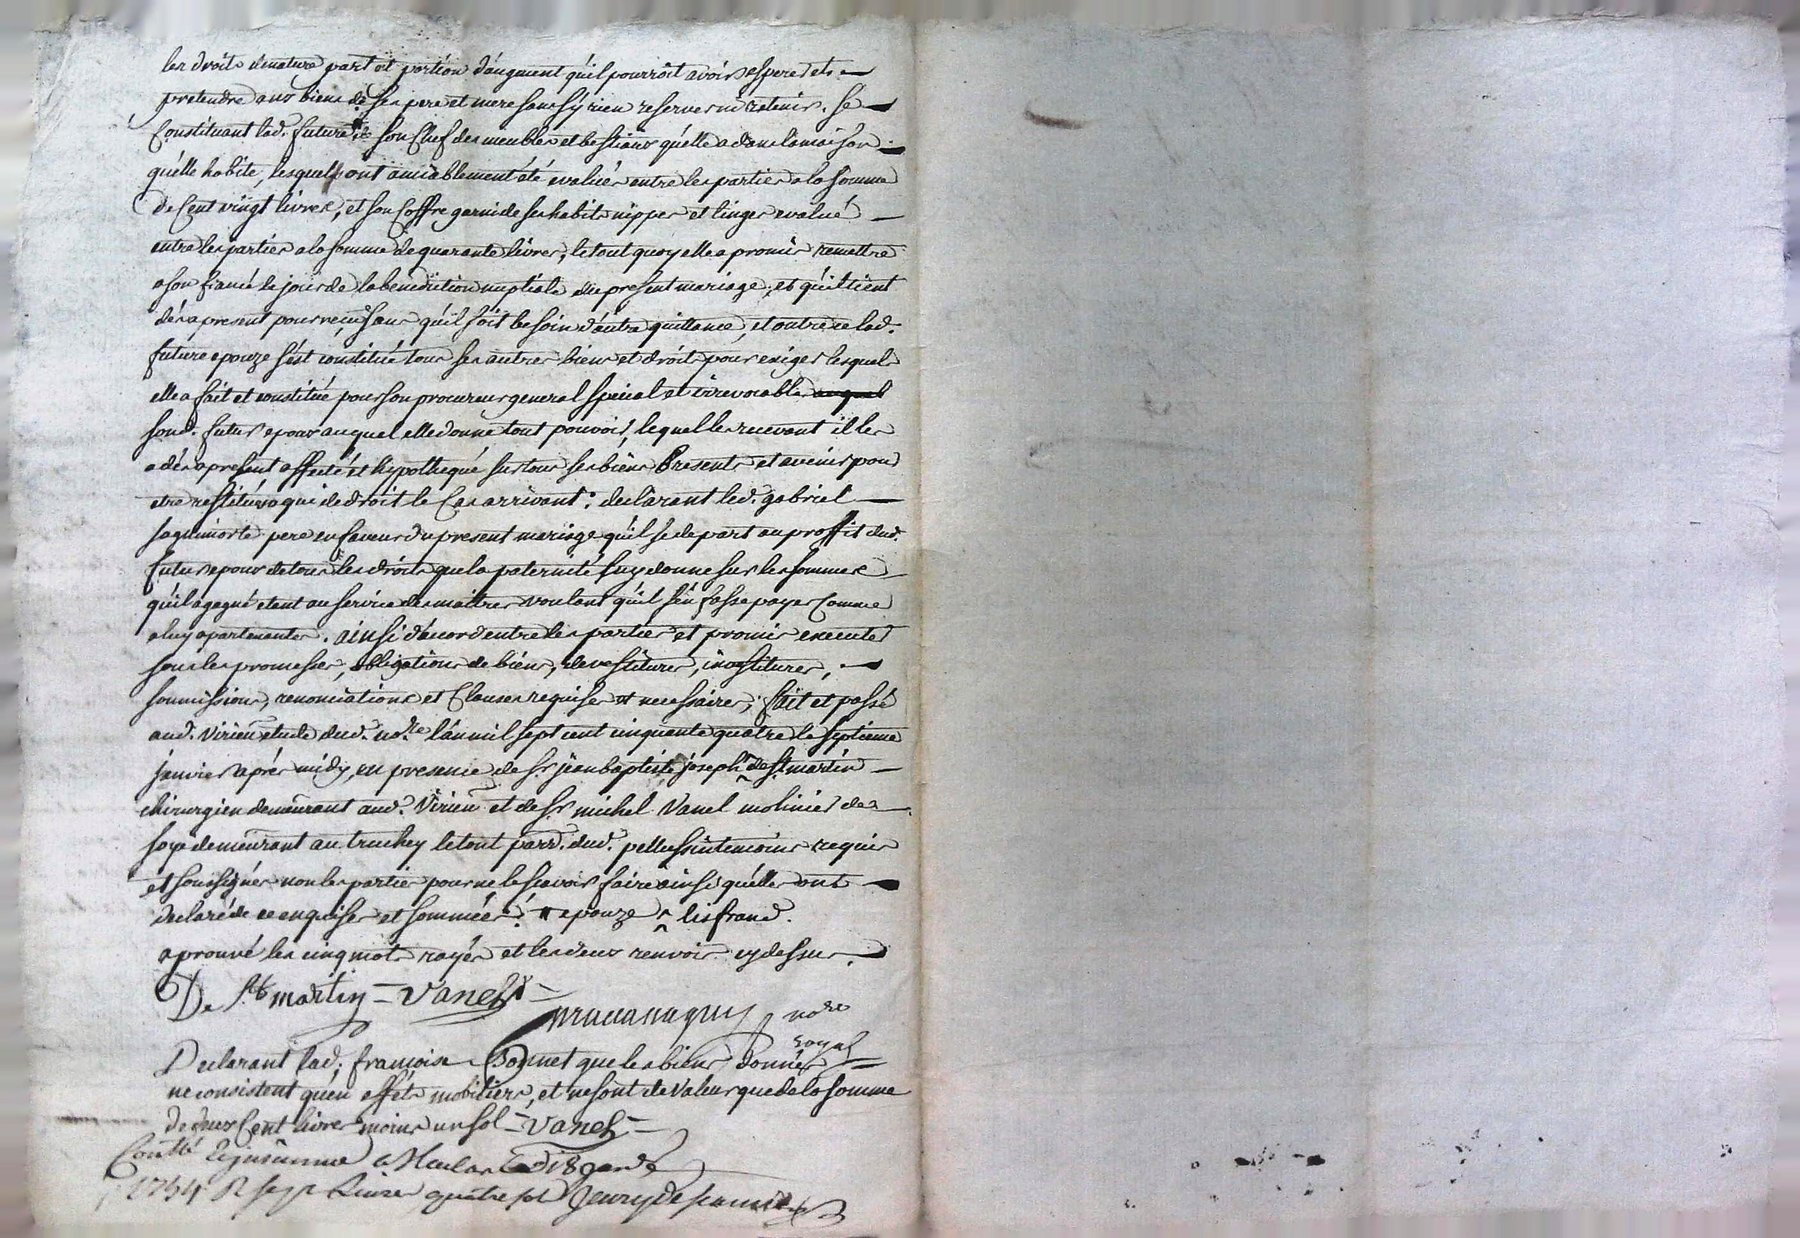 les droits de nature part et portion d'augment qu'il pourroit avoir esperer et
pretendre aux biens de ses pere et mere sans s'y rien reserver ni retenir. se
Constituant lad. future de son Chef des meubles et bestiaux qu'elle a dans la maison
qu'elle habite, lesquels ont amiablement été evalués entre les parties a la somme
de Cent vingt livres, et son Coffre garni de ses habits nippes et linges evalué
entre les parties a la somme de quarante livres, le tout quoy elle a promis remettre
a son fiancé le jour de la benediction nuptiale du present mariage, et qu'il tient
dès a present pour reçu sans qu'il soit besoin d'autre quittance, et outre ce lad.
future epouze s'est constitué tous ses autres biens et droits pour exiger lesquels
elle a fait et constitué pour son procureur general special et irrevocable auquel
sond. futur epoux auquel elle donne tout pouvoir, lequel les recevant il les
a dès a present affecté et hypothequé sur tous ses biens Presents et avenir pour
etre restitués a qui de droit le Cas arrivant : declarant led. gabriel
saquimorte pere en faveur du present mariage qu'il se depart au proffit dud.
futur epoux de tous les droits que la paternité luy donne sur les sommes
qu'il a gagné etant au service des maitres voulant qu'il s'en fasse payer Comme
a luy apartenantes. ainsi d'acord entre les parties et promis executer
sous les promesses, obligations de biens, devestitures, investitures,
soumissions, renonciations et Clauses requises et necessaires; fait et passé
aud. Virieu etude dud. no.re l'an mil sept cent cinquante quatre le septieme
janvier après midy, en presence de Sr. jean baptiste joseph de St. martin
chirurgien demeurant aud. Virieu et de Sr. michel Vanel molinier de
soye demeurant au truchey le tout parr. dud. pellussin temoins requis
et soussignés non les parties pour ne le sçavoir faire ainsi qu'elles ont
declaré de ce enquises et sommées. epouze lisfrand.
aprouvé les cinq mots rayés et les deux renvois cy dessus.
De St martin - Vanel
no.re
royal
Declarant lad. francoise que les biens donnés
ne consistent qu'en effets mobiliers, et ne sont de Valeur que de la somme
de deux Cent livres moins un sol - Vanel
Contllé a le 18 janv
1754 R sept Livres quatre sol